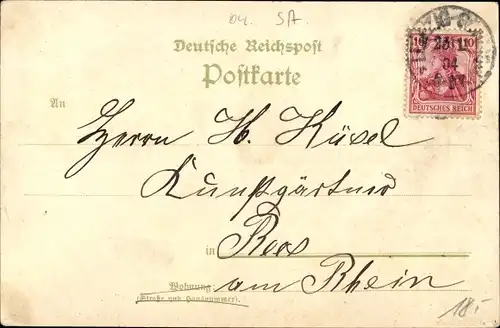 04. SA.
Deutsche Reichspost
Postkarte
10 10
23 11
04
DEUTSCHES REICH
An
Herrn H. Küsel
Kunstgärtner
in Rees
Wohnung am Rhein
(Straße und Hausnummer).
18.-